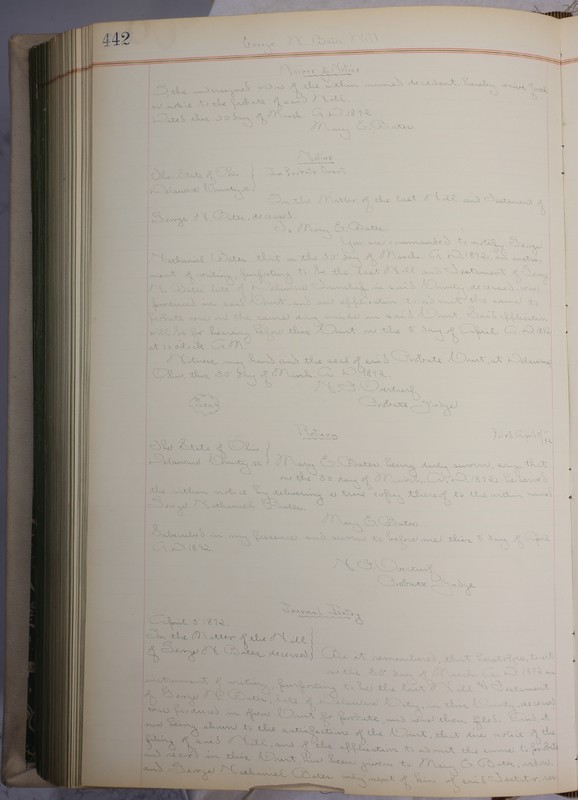 442
George N. Bates Will
Waiver of Notice
I the undersigned widow of the within named decedent hereby waive
notice to the probate of said Will.
Dated this 30 day of March A.D. 1892
Mary E. Bates
Notice
The State of Ohio
Delaware County ss In Probate Court
In the Matter of the last Will and Testament of
George N. Bates, deceased
To Mary E. Bates
You are commanded to notify George
Nathaniel Bates that on the 30 day of March A.D. 1892, an instru-
ment of writing, purporting to be the last Will and Testament of George
N. Bates late of Delaware Township in said County, deceased, was
produced in said Court, and an application to admit the same to
probate was on the same day made in said Court. Said application
will be for hearing before this Court on the 5 day of April A.D. 1892
at 10 o'clock A.M.
Witness my hand and the seal of said Probate Court, at Delaware
Ohio this 30 day of March A.D. 1892.
Seal
Probate Judge
Return
The State of Ohio
Delaware County ss Mary E. Bates being duly sworn, says that
on the 30 day of March A.D. 1892 he served
the within notice by delivering a true copy thereof to the within named
George Nathaniel Bates.
Mary E. Bates
Subscribed in my presence and sworn to before me this 5 day of April
A.D. 1892
Probate Judge
Journal Entry
April 5 1892
In the Matter of the Will
of George N. Bates deceased Be it remembered, that heretofore, to wit
on the 30 day of March A.D. 1892 an
instrument of writing, purporting to be the last Will & Testament
of George N. Bates, late of Delaware City, in this County, deceased
was produced in open Court for probate and was then filed. And it
now being shown to the satisfaction of the Court, that due notice of the
filing of said Will, and of the application to admit the same to probate
and record in this Court has been given to Mary E. Bates, widow,
and George Nathaniel Bates only next of kin of said Testator res